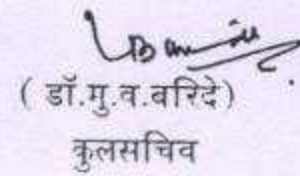 ( डॉ.गु.व.बरिदे)
कुलसचिव